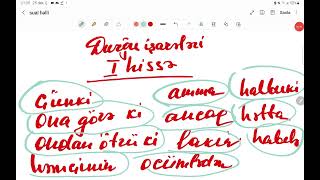 sual halli
Durğu işarələri
I hissə
Çünki amma halbuki
Ona görə ki ancaq hətta
ondan ötrü ki lakin habelə
həmçinin